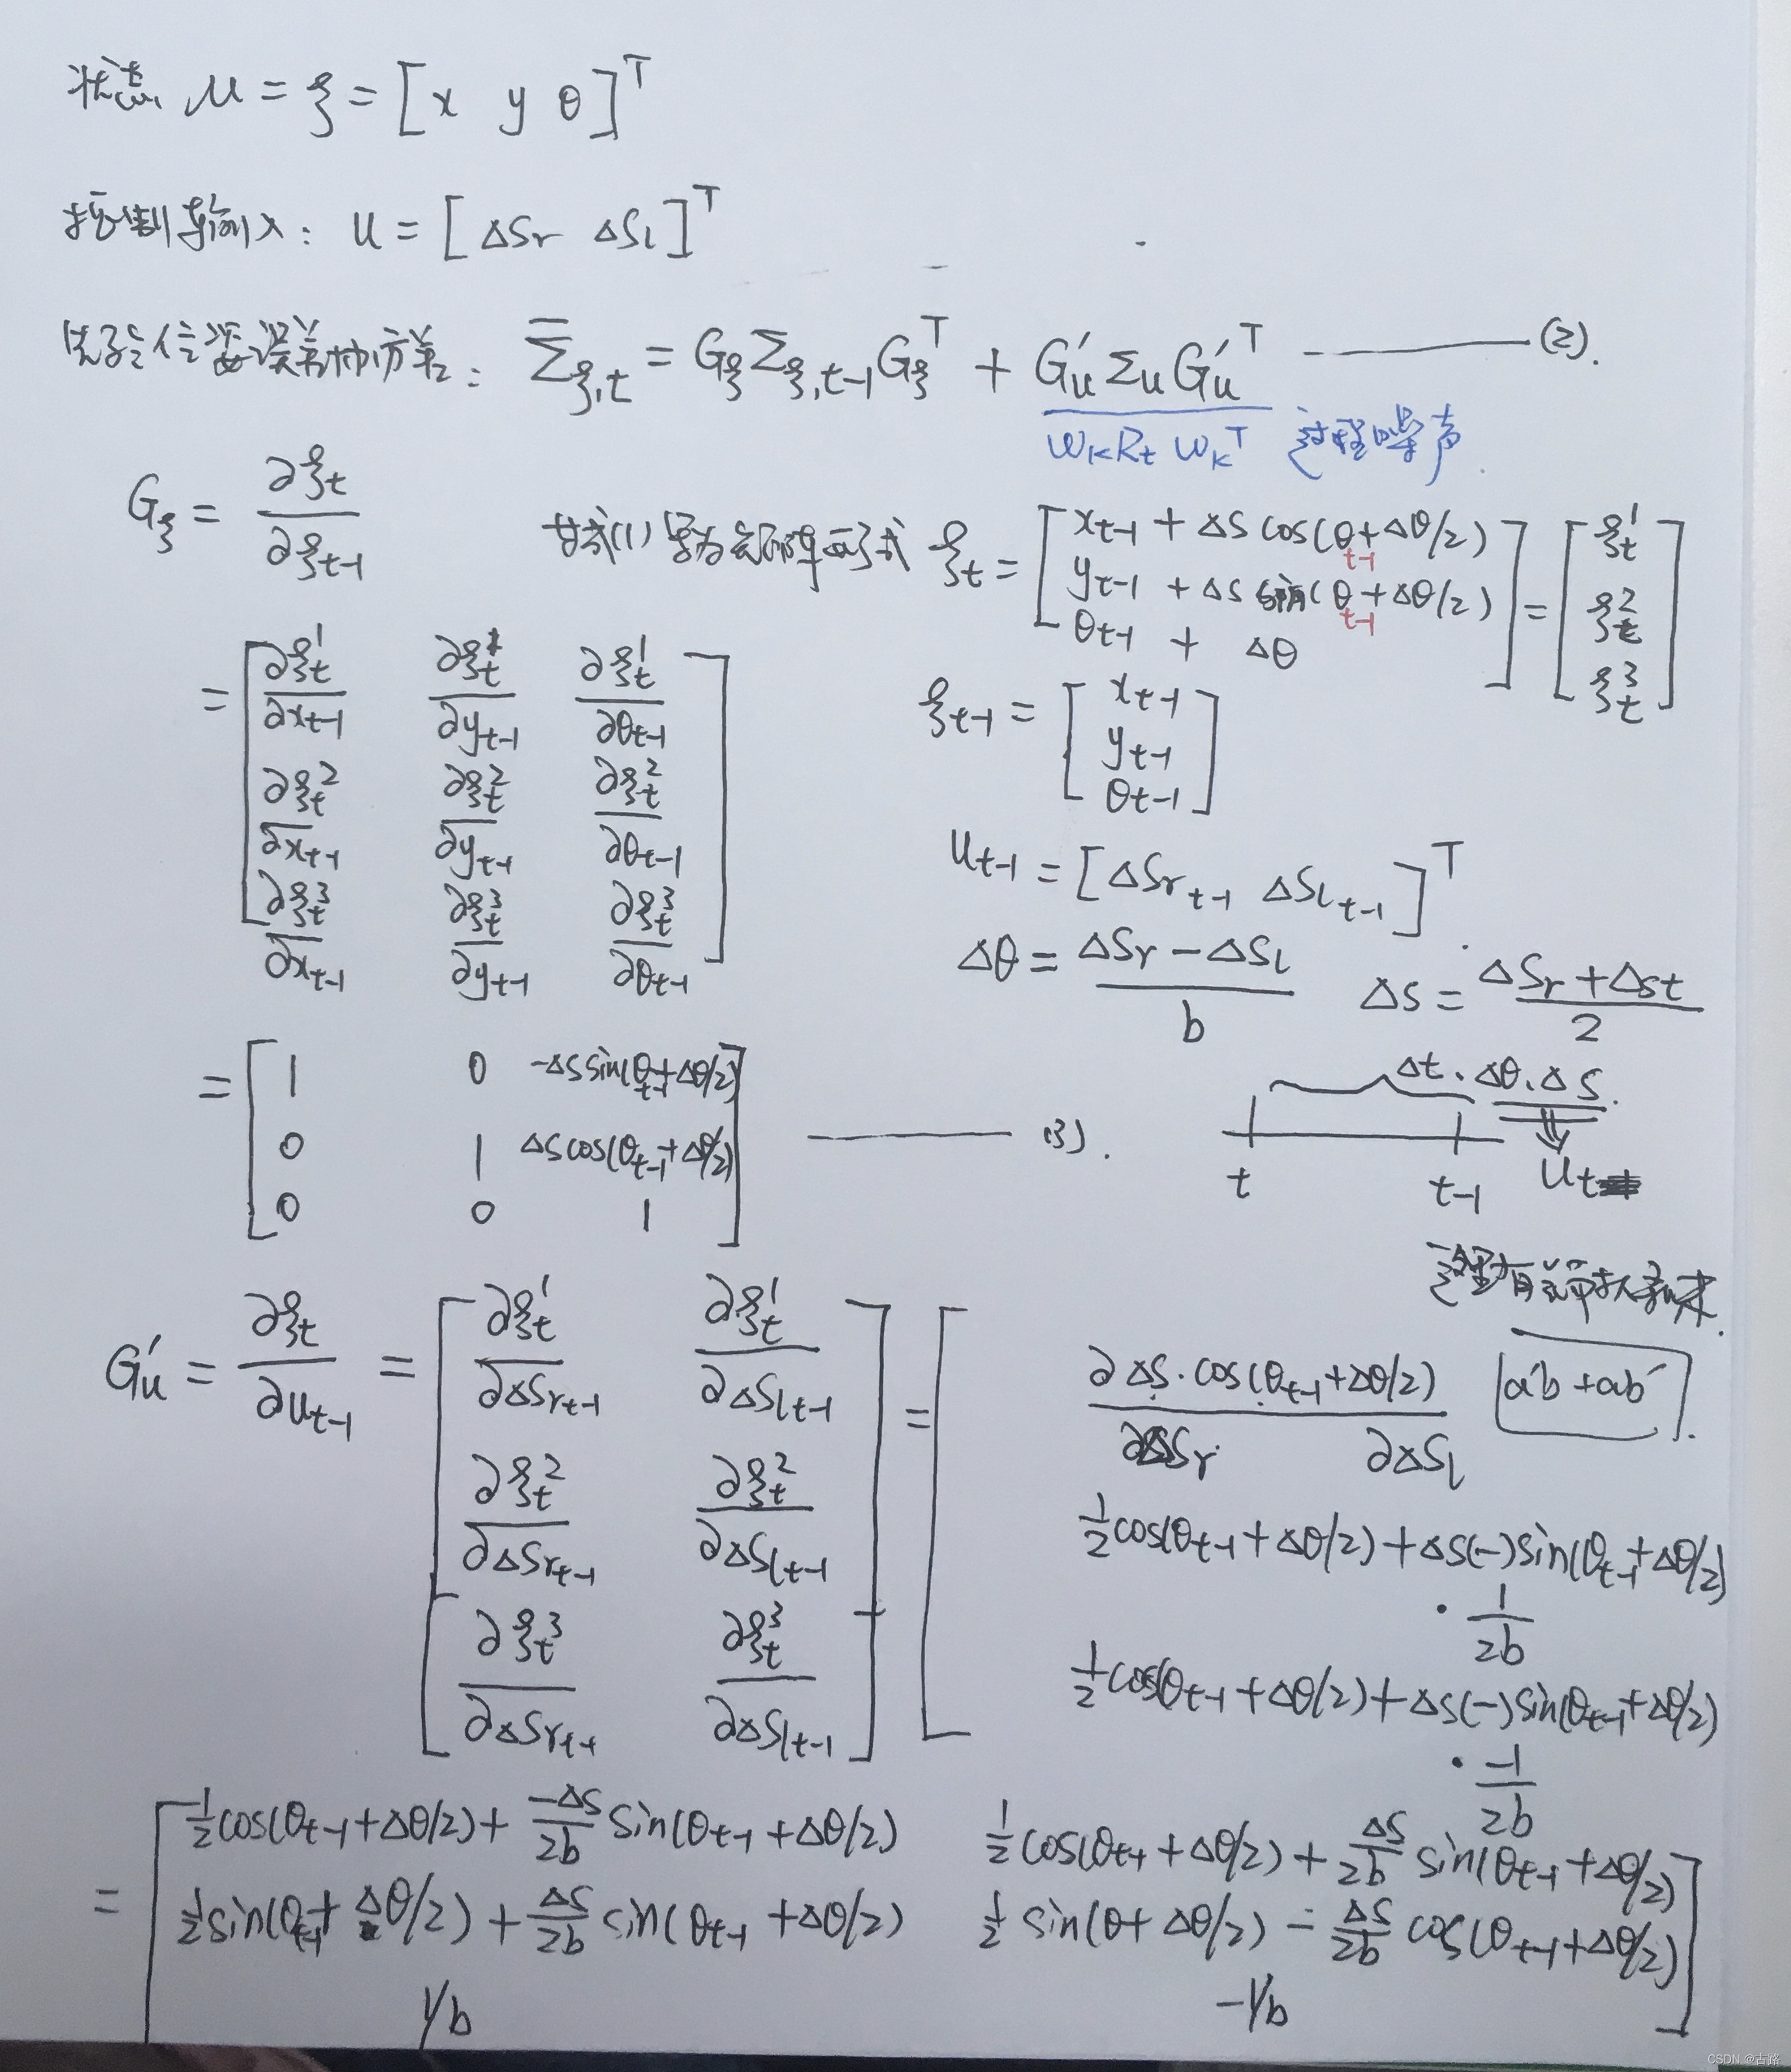 状态 μ = ξ = [x y θ]^T
控制输入: u = [ΔSr ΔSl]^T
先验位姿误差协方差: Σ̄_ξ,t = G_ξ Σ_ξ,t-1 G_ξ^T + G'_u Σ_u G'_u^T ——— (2).
W_K R_t W_K^T 过程噪声.
G_ξ = ∂ξt / ∂ξt-1
式(1)写为矩阵形式 ξt = [x_t-1 + ΔS cos(θ_t-1 + Δθ/2)
y_t-1 + ΔS sin(θ_t-1 + Δθ/2)
θ_t-1 + Δθ] = [ξt^1
ξt^2
ξt^3]
= [∂ξt^1/∂x_t-1 ∂ξt^1/∂y_t-1 ∂ξt^1/∂θ_t-1
∂ξt^2/∂x_t-1 ∂ξt^2/∂y_t-1 ∂ξt^2/∂θ_t-1
∂ξt^3/∂x_t-1 ∂ξt^3/∂y_t-1 ∂ξt^3/∂θ_t-1]
ξt-1 = [x_t-1
y_t-1
θ_t-1]
u_t-1 = [ΔSr_t-1 ΔSl_t-1]^T.
Δθ = (ΔSr - ΔSl) / b ΔS = (ΔSr + ΔSt) / 2
= [1 0 -ΔS sin(θ_t-1 + Δθ/2)
0 1 ΔS cos(θ_t-1 + Δθ/2)
0 0 1] ——— (3).
Δt. Δθ. ΔS.
t t-1 ut
这里有
G'_u = ∂ξt / ∂u_t-1 = [∂ξt^1/∂ΔSr_t-1 ∂ξt^1/∂ΔSl_t-1
∂ξt^2/∂ΔSr_t-1 ∂ξt^2/∂ΔSl_t-1
∂ξt^3/∂ΔSr_t-1 ∂ξt^3/∂ΔSl_t-1] = [
∂ΔS·cos(θ_t-1 + Δθ/2) a'b + ab'
∂ΔSr ∂ΔSl
1/2 cos(θ_t-1 + Δθ/2) + ΔS(-)sin(θ_t-1 + Δθ/2)
· 1/2b
1/2 cos(θ_t-1 + Δθ/2) + ΔS(-)sin(θ_t-1 + Δθ/2)
· -1/2b
= [1/2 cos(θ_t-1 + Δθ/2) + -ΔS/2b sin(θ_t-1 + Δθ/2) 1/2 cos(θ_t-1 + Δθ/2) + ΔS/2b sin(θ_t-1 + Δθ/2)
1/2 sin(θ_t-1 + Δθ/2) + ΔS/2b sin(θ_t-1 + Δθ/2) 1/2 sin(θ + Δθ/2) - ΔS/2b cos(θ_t-1 + Δθ/2)
1/b -1/b]
CSDN @古路